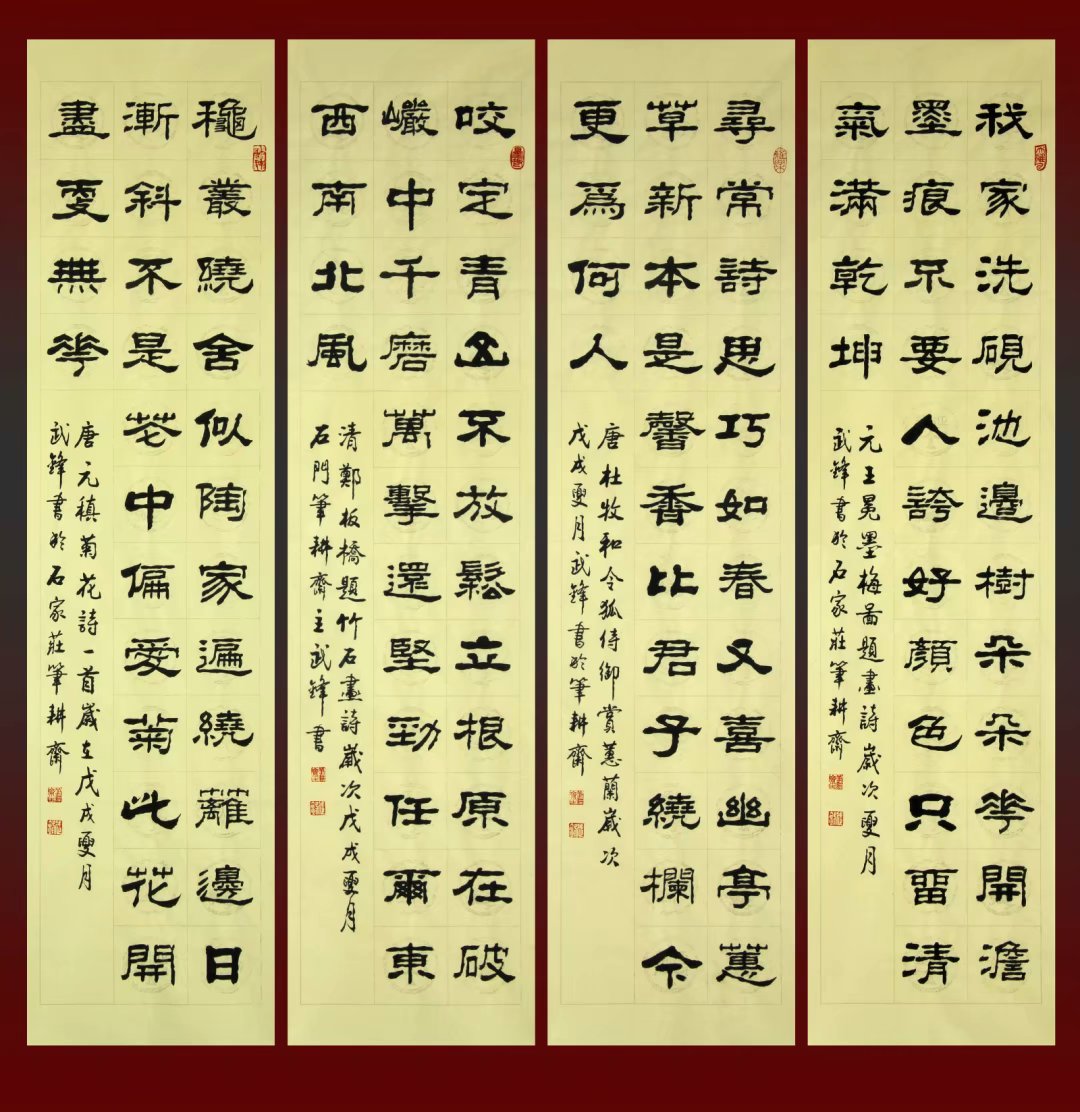 我家洗硯池邊樹朵朵華開澹
墨痕不要人誇好顏色只留清
氣滿乾坤
元王冕墨梅圖題畫詩歲次夏月
武鋒書於石家莊筆耕齋
尋常詩思巧如春又喜幽亭蕙
草新本是馨香比君子繞欄今
更爲何人
唐杜牧和令狐侍御賞蕙蘭歲次
戊戌夏月武鋒書於筆耕齋
咬定青山不放鬆立根原在破
巖中千磨萬擊還堅勁任爾東
西南北風
清鄭板橋題竹石畫詩歲次戊戌夏月
石門筆耕齋主武鋒書
龝叢繞舍似陶家遍繞籬邊日
漸斜不是花中偏愛菊此花開
盡更無華
唐元稹菊花詩一首歲在戊戌夏月
武鋒書於石家莊筆耕齋